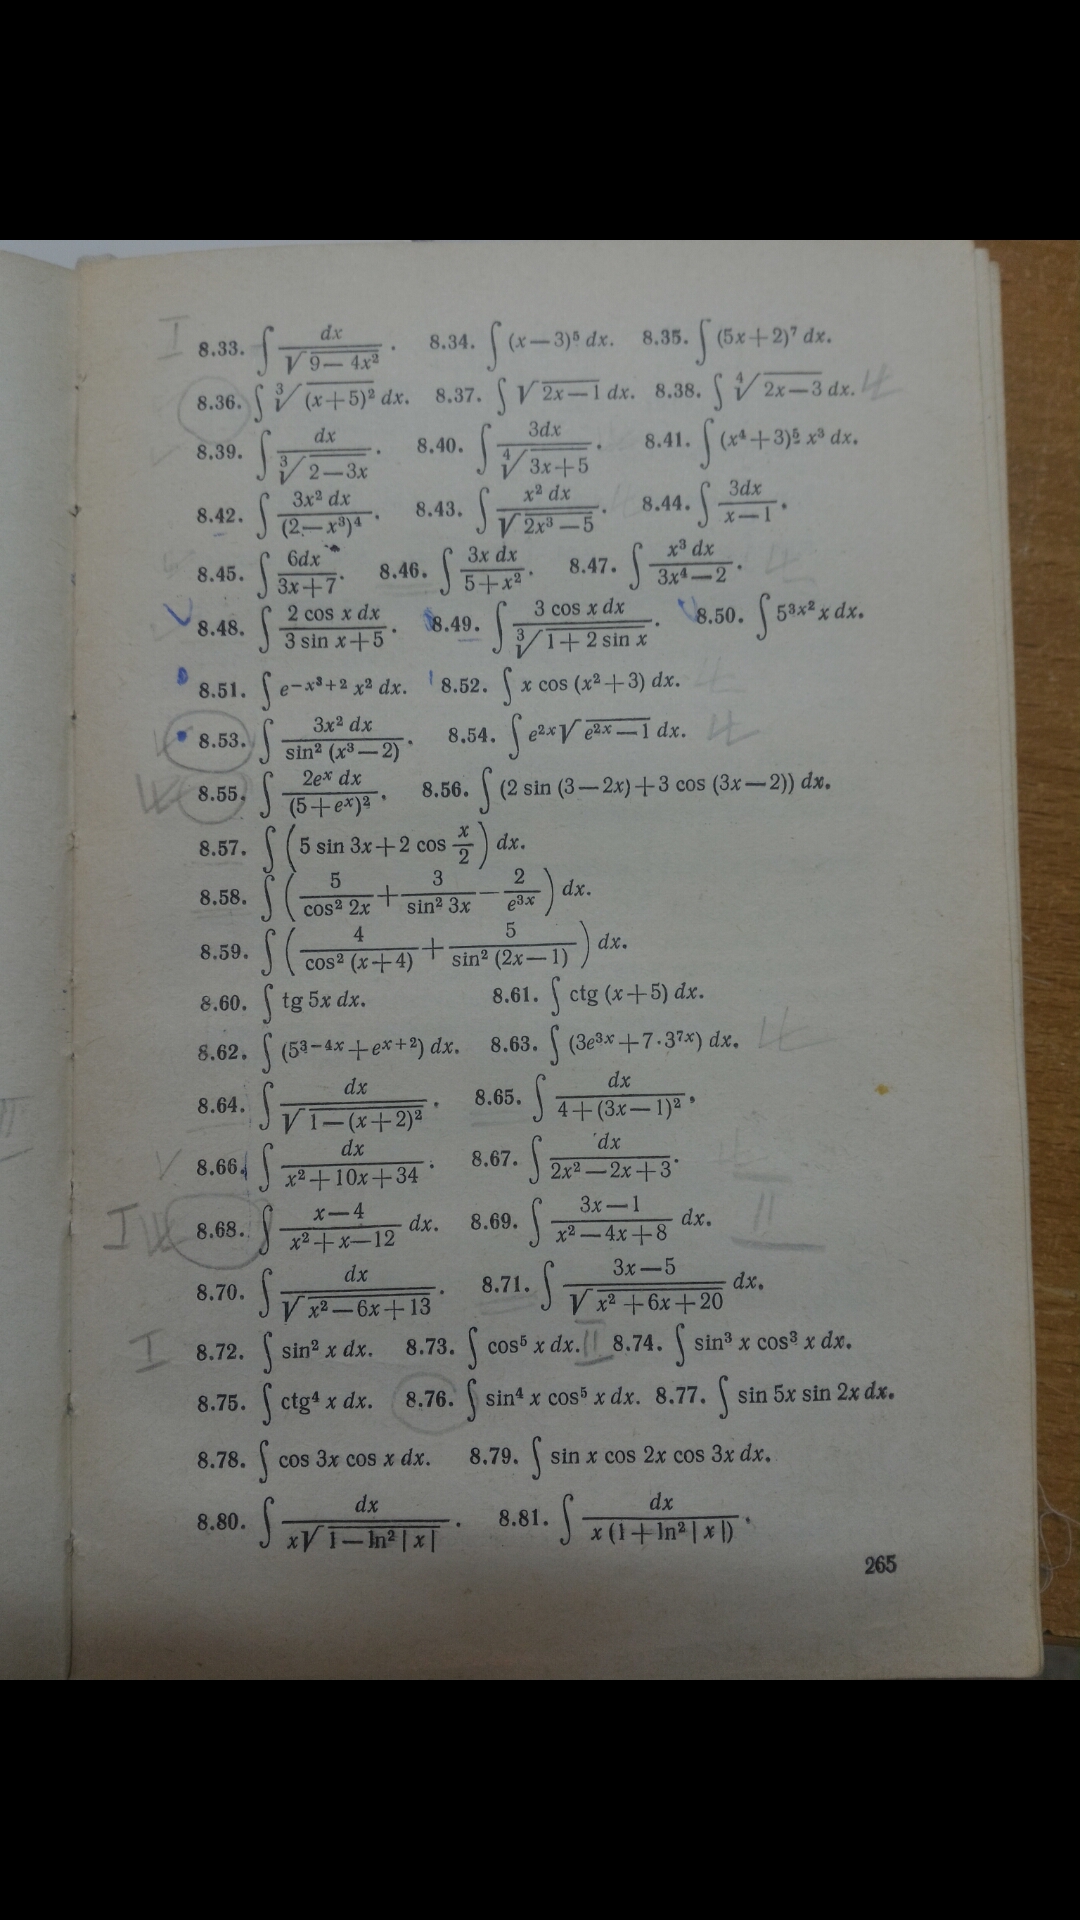 8.33. ∫ dx/√(9—4x²). 8.34. ∫ (x—3)⁵ dx. 8.35. ∫ (5x+2)⁷ dx.
8.36. ∫ ∛((x+5)²) dx. 8.37. ∫ √(2x—1) dx. 8.38. ∫ ∜(2x—3) dx.
8.39. ∫ dx/∛(2—3x). 8.40. ∫ 3dx/∜(3x+5). 8.41. ∫ (x⁴+3)⁵ x³ dx.
8.42. ∫ 3x² dx/(2—x³)⁴. 8.43. ∫ x² dx/√(2x³—5). 8.44. ∫ 3dx/(x—1).
8.45. ∫ 6dx/(3x+7). 8.46. ∫ 3x dx/(5+x²). 8.47. ∫ x³ dx/(3x⁴—2).
8.48. ∫ 2 cos x dx/(3 sin x+5). 8.49. ∫ 3 cos x dx/∛(1+2 sin x). 8.50. ∫ 5^(3x²) x dx.
8.51. ∫ e^(−x³+2) x² dx. 8.52. ∫ x cos (x²+3) dx.
8.53. ∫ 3x² dx/sin² (x³—2). 8.54. ∫ e²ˣ√(e²ˣ—1) dx.
8.55. ∫ 2eˣ dx/(5+eˣ)². 8.56. ∫ (2 sin (3—2x)+3 cos (3x—2)) dx.
8.57. ∫ (5 sin 3x+2 cos x/2) dx.
8.58. ∫ (5/cos² 2x + 3/sin² 3x — 2/e³ˣ) dx.
8.59. ∫ (4/cos² (x+4) + 5/sin² (2x—1)) dx.
8.60. ∫ tg 5x dx. 8.61. ∫ ctg (x+5) dx.
8.62. ∫ (5^(3−4x)+e^(x+2)) dx. 8.63. ∫ (3e³ˣ+7·3⁷ˣ) dx.
8.64. ∫ dx/√(1—(x+2)²). 8.65. ∫ dx/(4+(3x—1)²).
8.66. ∫ dx/(x²+10x+34). 8.67. ∫ dx/(2x²—2x+3).
8.68. ∫ (x—4)/(x²+x—12) dx. 8.69. ∫ (3x—1)/(x²—4x+8) dx.
8.70. ∫ dx/√(x²—6x+13). 8.71. ∫ (3x—5)/√(x²+6x+20) dx.
8.72. ∫ sin² x dx. 8.73. ∫ cos⁵ x dx. 8.74. ∫ sin³ x cos³ x dx.
8.75. ∫ ctg⁴ x dx. 8.76. ∫ sin⁴ x cos⁵ x dx. 8.77. ∫ sin 5x sin 2x dx.
8.78. ∫ cos 3x cos x dx. 8.79. ∫ sin x cos 2x cos 3x dx.
8.80. ∫ dx/(x√(1—ln² |x|)). 8.81. ∫ dx/(x (1+ln² |x|)).
265